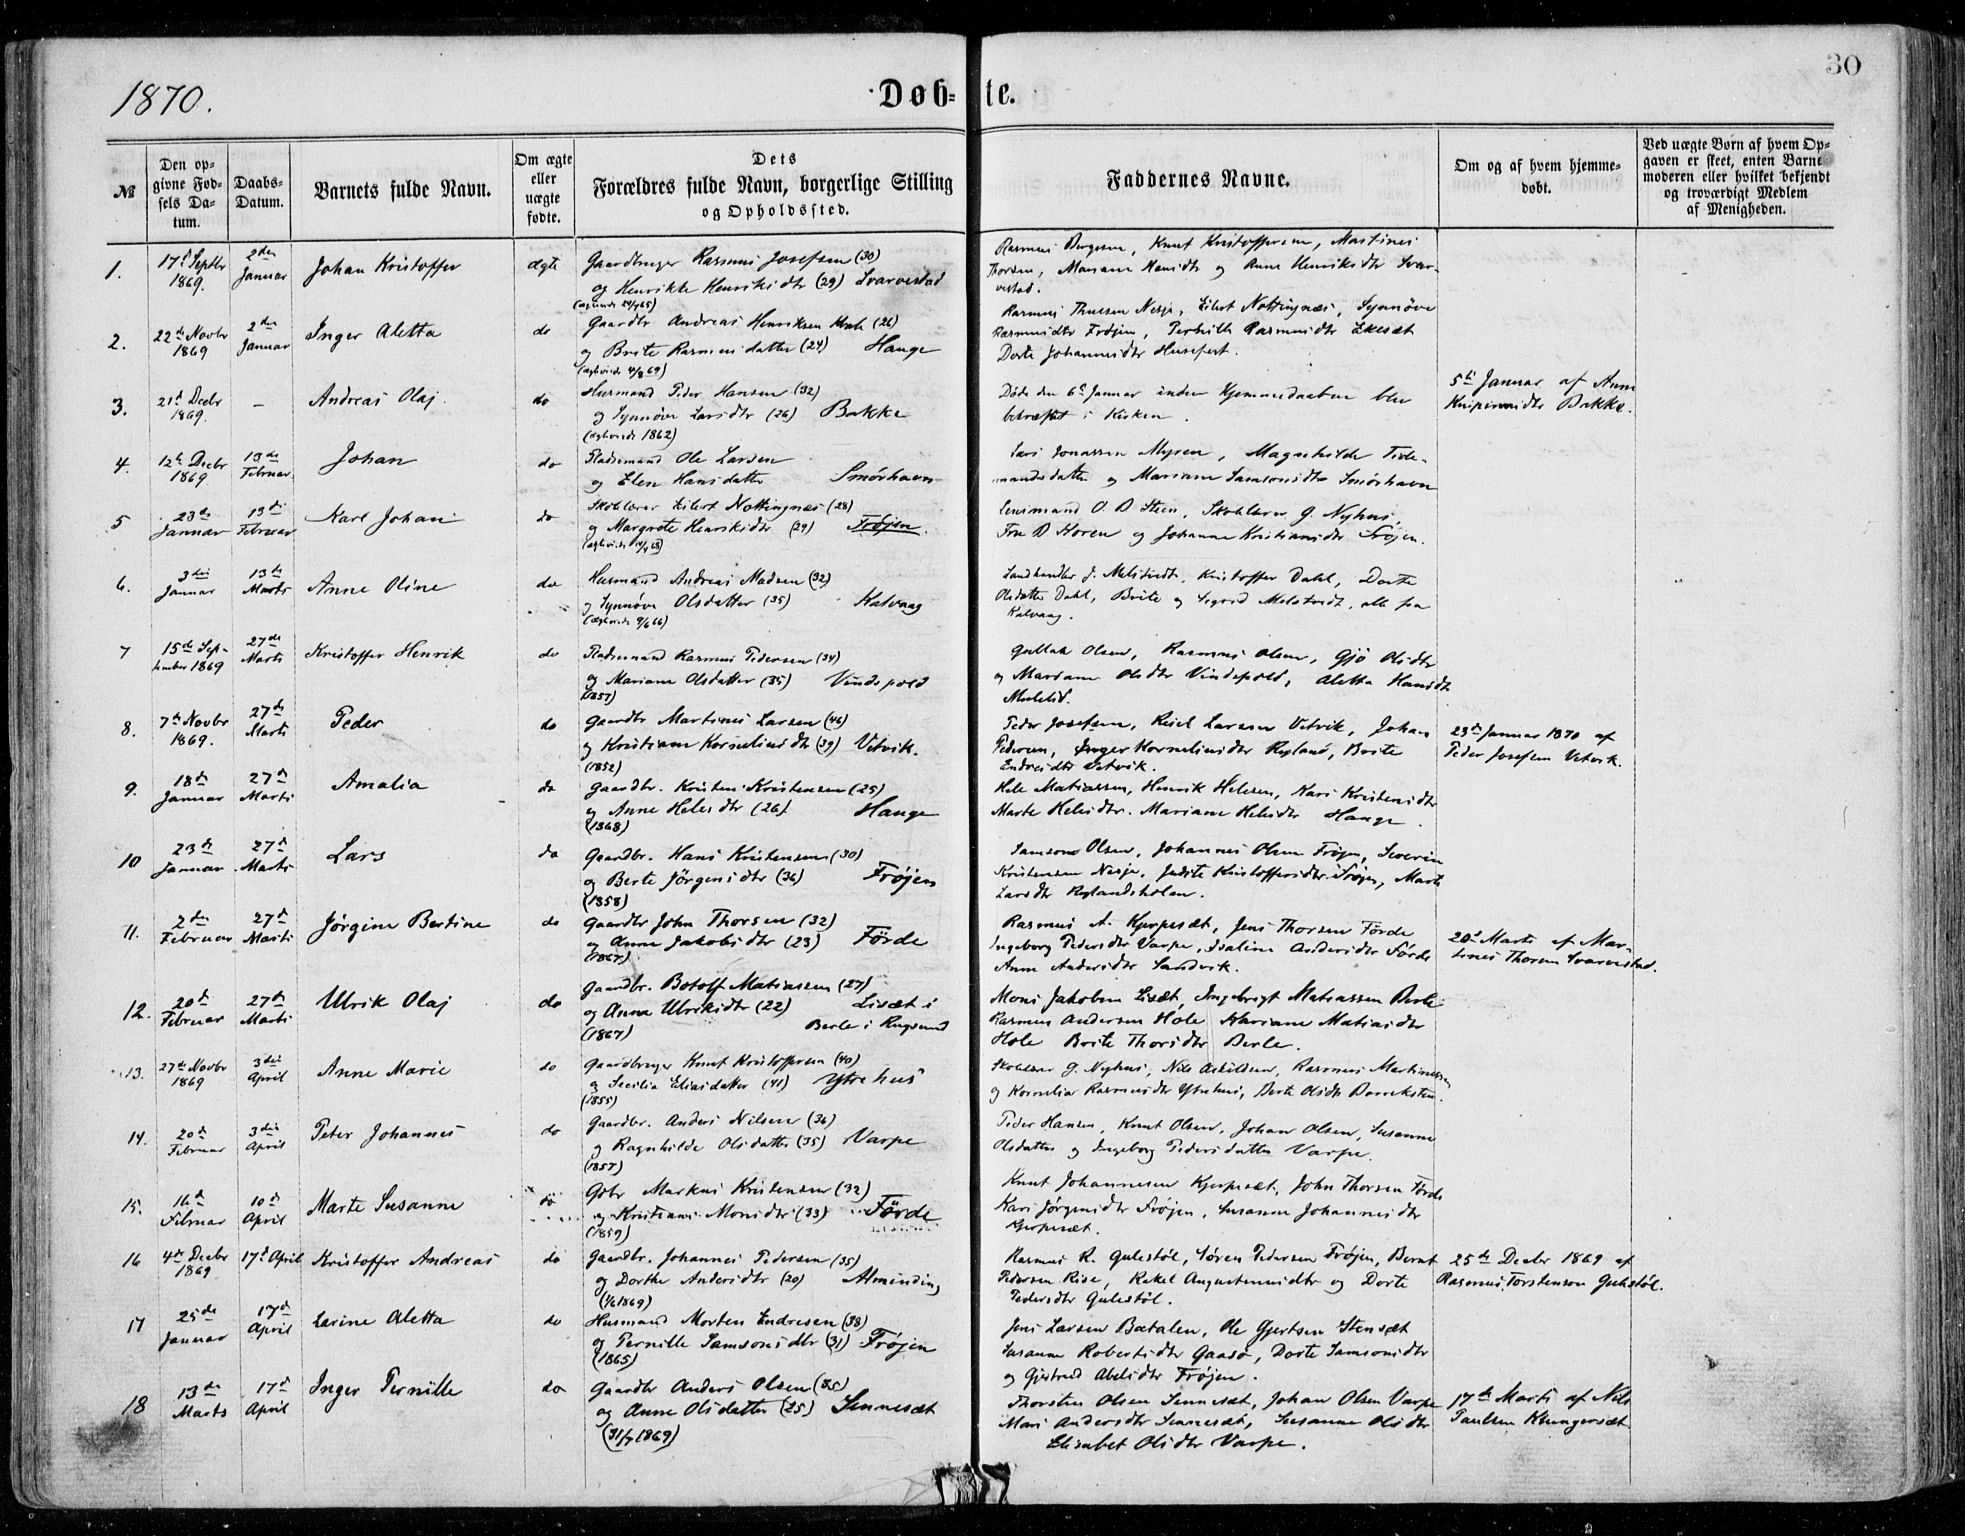 30
1870.
Døb-te.
№
Den opgivne Fødsels Datum.
Daabs-Datum.
Barnets fulde Navn.
Om ægte eller uægte fødte.
Dets Forældres fulde Navn, borgerlige Stilling og Opholdssted.
Faddernes Navne.
Om og af hvem hjemmedøbt.
Ved uægte Børn af hvem Opgaven er skeet, enten Barnemoderen eller hvilket bekjendt og troværdigt Medlem af Menigheden.
1. 17d Septbr 1869 2den Januar Johan Kristoffer ægte Gaardbruger Rasmus Josefsen (30)
og Henrikke Henriksdtr (29) Svarvestad
Knut Kristoffersen, Martines
Thorsen, Mariane Hansdtr og Anne Henriksdtr Svarvestad.
2. 22de Novbr 1869 2den Januar Inger Aletta do Gaardbr Andreas Henriksen (26)
og Brite Rasmusdatter (24) Hauge
Rasmus Thuesen Nesje, Eilert Nottingnæs, Synnøve
Rasmusdtr Frøjen, Pernille Rasmusdtr Ekesæt
Dorte Johannesdtr Husefest.
3. 21d Decbr 1869. – Andreas Olaj. do Husmand Peder Hansen (32)
og Synnøve Larsdtr (26) Bakke
(ægteviede 1862)
Døde den 6te Januar inden Hjemmedaaben blev
bekræftet i Kirken.
5te Januar af Anne
Bakke.
4. 12te Decbr 1869 13de Februar Johan do Pladsemand Ole Larsen
og Elen Hansdatter Smørhavn
Lars Jonassen Myren, Magnhilde Tidemandsdatter og Mariane Samsonsdtr Smørhavn
5 23de Januar 13de Februar Karl Johan do Skolelærer Eilert Nottingnæs (28)
og Margrete Henriksdtr (29) Frøjen.
Lensmand O. D Steen, Skolelærer G. Nyhus,
Fru D Koren og Johanne Kristiansdtr Frøjen.
6. 3die Januar 13de Marts Anne Oline do Husmand Andreas Madsen (32)
og Synnøve Olsdatter (35) Kalvaag
(ægteviede 9/6 66)
Landhandler J. Melstvedt, Kristoffer Dahl, Dorte
Olsdatter Dahl, Brite og Sigrid Melstvedt, alle fra
Kalvaag.
7 15de September 1869 27de Marts Kristoffer Henrik do Pladsemand Rasmus Pedersen (34)
og Mariane Olsdatter (35) Vindspold
(1857)
Gullak Olsen, Rasmus Olsen, Gjø Olsdtr
og Mariane Olsdtr Vindspold, Aletta Hansdtr
8. 7de Novbr 1869. 27de Marts Peder do Gaardbr Martines Larsen (46)
og Kristiane Korneliusdtr (39) Vetvik.
(1852)
Peder Josefsen, Larsen Vetvik, Johan
Pedersen, Inger Korneliusdtr Ryland, Brite
Endresdtr Vetvik.
23de Januar 1870 af
Peder Josefsen Vetvik.
9. 18de Januar 27d Marts Amalia do Gaardbr. Kristen Kristensen (25)
og Anne Helesdtr (26) Hauge
(1868)
Hele Matiassen, Henrik Helesen, Kari Kristensdtr
Marte Helesdtr. Mariane Helesdtr Hauge.
10 23de Januar 27d Marts Lars do Gaardbr. Hans Kristensen (30)
og Berte Jørgensdtr (36) Frøjen
(1858)
Samson Olsen, Johannes Olsen Frøjen, Severin
Kristensen Nesje, Judite Kristoffersdtr Frøjen, Marte
Larsdtr Rylandsholen.
11. 2den Februar 27d Marts Jørgine Bertine do Gaardbr John Thorsen (32)
og Anne Jakobsdtr (23) Førde
(1867)
Rasmus A. Kjerpesæt, Jens Thorsen Førde
Ingeborg Pedersdtr Varpe, Isaline Andersdtr Førde
Anne Andersdtr Sandvik.
20d Marts af Martines Thorsen Svarvestad.
12. 20d Februar 27de Marts Ulrik Olaj do Gaardbr. Botolf Matiassen (27)
og Anne Ulriksdtr (22) Lisæt i
(1867) Berle i Rugsund
Mons Jakobsen Lisæt, Ingebrigt Matiassen Berle
Rasmus Andersen Hole Mariane Matiasdtr
Hole Brite Thorsdtr Berle.
13. 27de Novbr 1869 3die April Anne Marie do Gaardbruger Knut Kristoffersen (40)
og Secilia Eliasdatter (41) Ytrehus
(1855)
Skolelærer G. Nyhus, Nils Askildsen, Rasmus Martinessen
og Kornelia Rasmusdtr Ytrehus, Berte Olsdtr Barreksten.
14. 20d Februar 3die April Peter Johannes do Gaardbr. Anders Nilsen (36)
og Ragnhilde Olsdatter (35) Varpe
(1857)
Peder Hansen, Knut Olsen, Johan Olsen, Susanne
Olsdatter og Ingeborg Pedersdatter Varpe.
15. 16d Februar 10d April Marte Susanne do Gdbr Markus Kristensen (32)
og Kristiane Monsdtr (33) Førde
(1859)
Knut Johannesen Kjerpesæt, John Thorsen Førde
Kari Jørgensdtr Frøjen, Susanne Johannesdtr
Kjerpesæt.
16 4de Decbr 1869 17d April Kristoffer Andreas do Gaardbr. Johannes Pedersen (35)
og Dorthe Andersdtr (20) Alminding
(1/6 1869)
Rasmus R. Gulestøl, Søren Pedersen Frøjen, Bernt
Pedersen Rise, Rakel Augustinusdtr og Dorte
Pedersdtr Gulestøl.
25de Decbr 1869 af
Rasmus Torstenson Gulestøl.
17 25de Januar 17d April Larine Aletta do Husmand Morten Endresen (38)
og Pernille Samsonsdtr (31) Frøjen
(1865)
Jens Larsen Batalen, Ole Gjertsen Stensæt
Susanne Robertsdtr Gaasø, Dorte Samsonsdtr
og Gjertrud Abelsdtr Frøjen.
18 13de Marts 17d April Inger Pernille do Gaardbr Anders Olsen (35)
og Anne Olsdatter (25) Sennesæt
(31/7 1869)
Thorsten Olsen Sennesæt, Johan Olsen Varpe
Mari Andersdtr Sennesæt, Susanne Olsdtr
Elisabet Olsdtr Varpe.
17de Marts af Nils
Paulsen